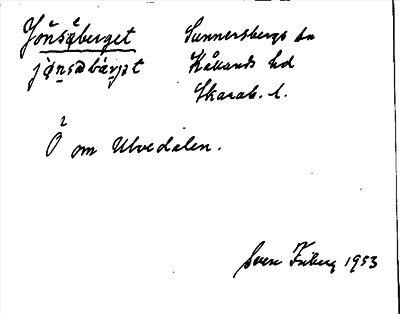 Jönsaberget Sunnersbergs sn
jønsabärjət Kållands hd
Skarab. l.
Ö om Ulvedalen.
Sven Friberg 1953